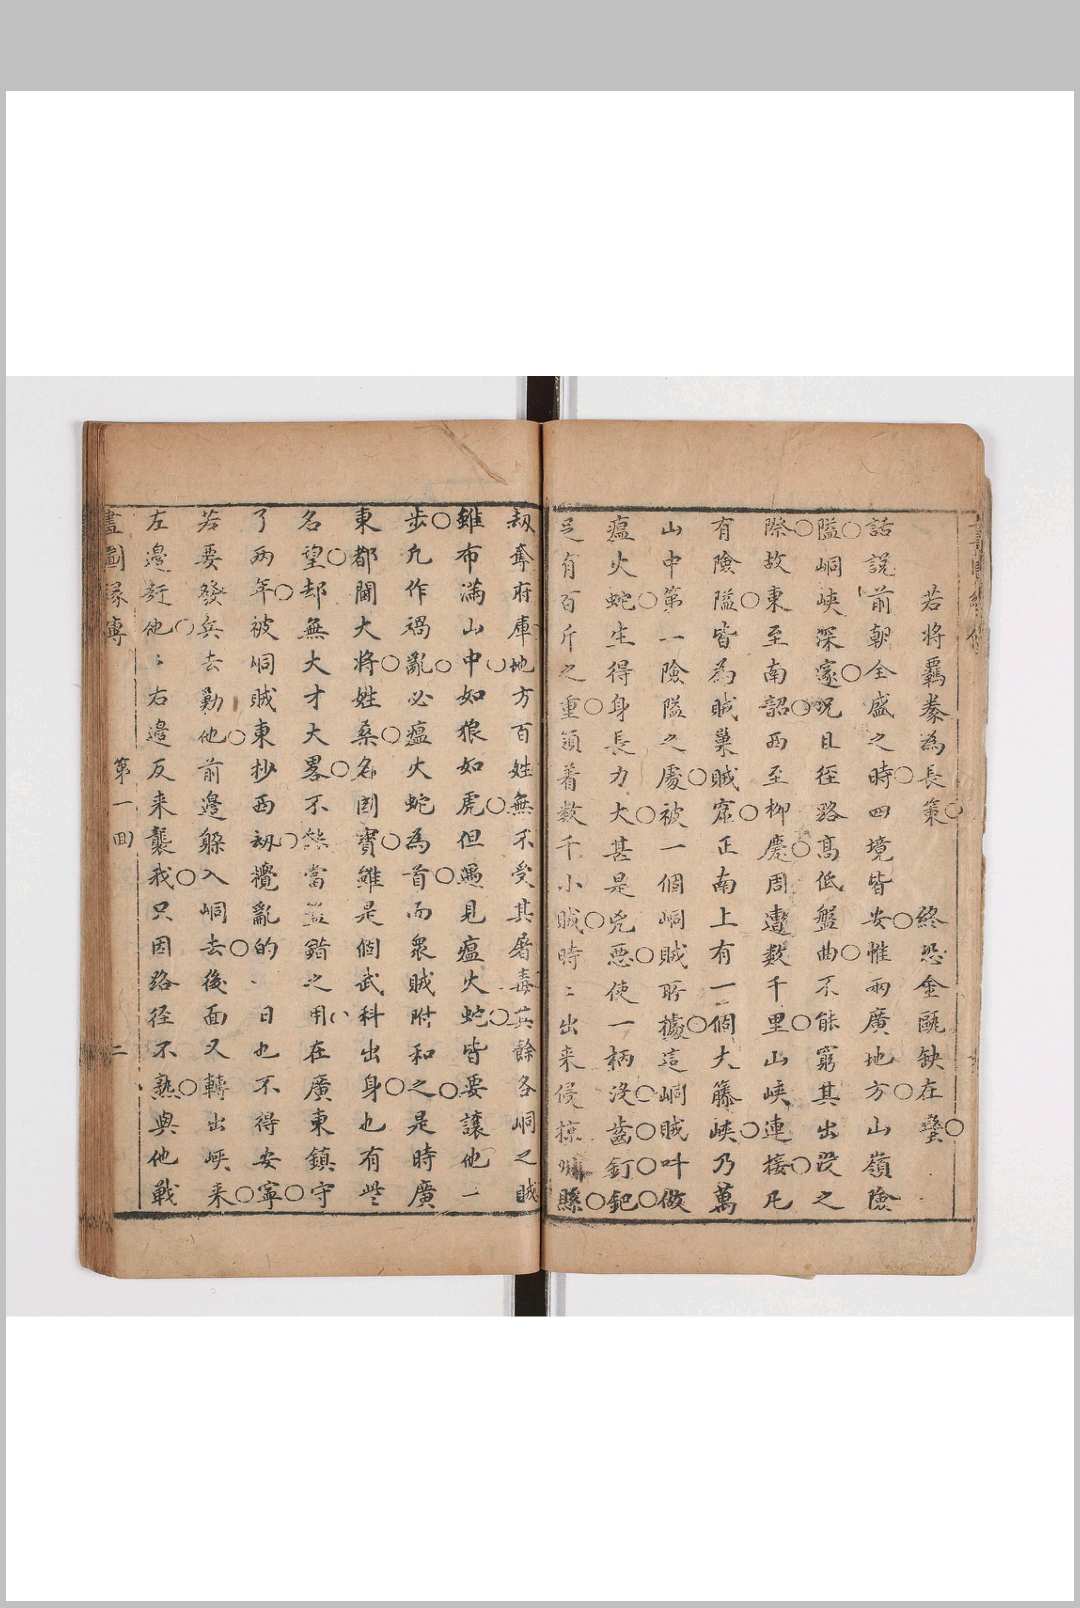 若將羈豢為長策　終恐金甌缺在蠻
話說前朝全盛之時四境皆安惟兩廣地方山嶺險
隘峒峽深邃況且徑路高低盤曲不能窮其出没之
際故東至南韶西至柳慶周遭數千里山峽連接凡
有險隘皆為賊巢賊窟正南上有一個大籐峽乃萬
山中第一險隘之處被一個峒賊所據這峒賊叫做
瘟火蛇生得身長力大甚是兇惡使一柄没齒釘鈀
足有百斤之重領着數千小賊時〻出来侵掠縣
劫奪府庫地方百姓無不受其屠毒其餘各峒之賊
雖布滿山中如狼如虎但遇見瘟火蛇皆要讓他一
步凡作禍亂必瘟火蛇為首而衆賊附和之是時廣
東都閫大將姓桑名國寶雖是個武科出身也有些
名望却無大才大畧不能當錯之用在廣東鎮守
了兩年被峒賊東抄西劫攪亂的日也不得安寧
若要發兵去勦他前邊躲入峒去後面又轉出峽来
左邊趕他〻右邊反来襲我只因路徑不熟與他戰
畫圖緣傳　第一回　二